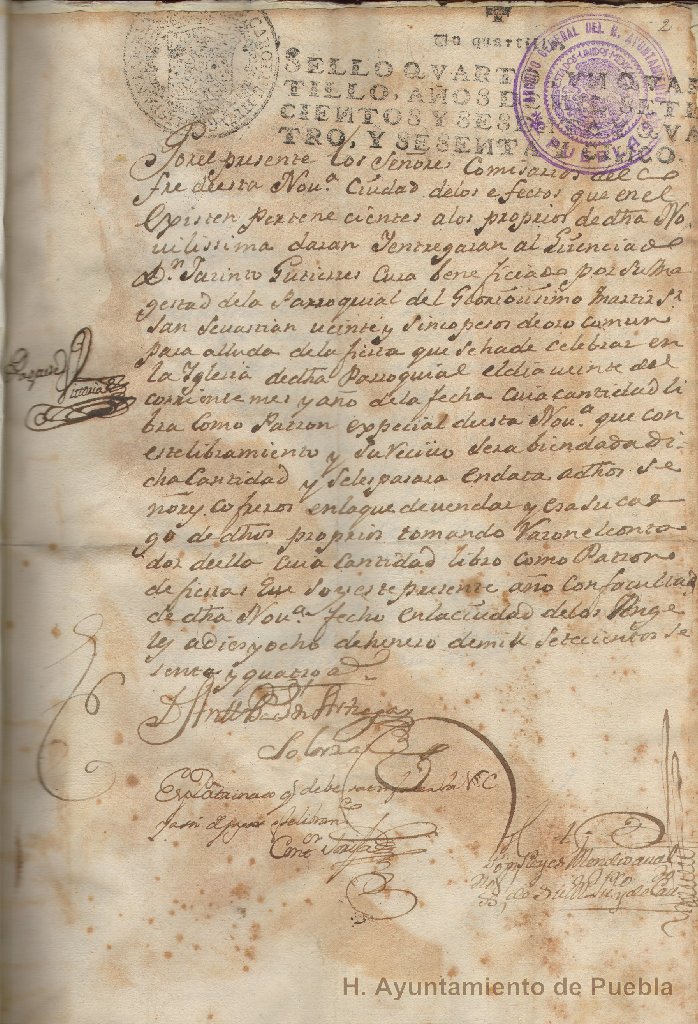 2
Vn quartillo
SELLO QVARTO, VN QVAR
TILLO, AÑOS DE MIL SETE
CIENTOS Y SESENTA Y QVA
TRO, Y SESENTA Y CINCO.
ARCHIVO GENERAL DEL H. AYUNTAMIENTO
PUEBLA
Por el presente los Señores Comisarios del Co
fre de esta Nou.ª Ciudad de los efectos que en el
existen pertenecientes a los proprios de dha No
uilissima daran Y entregaran al Lizenciado
D.n Jacinto Gutierres Cura beneficiado por su Ma
gestad de la Parroquial del Gloriosissimo Martir S.r
San Sevastian veinte y sinco pesos de oro comun
para alluda de la fiesta que se ha de celebrar en
la Iglesia de dha Parroquial el dia veinte del
corriente mes y año de la fecha Cuia cantidad li
bra Como Patron expecial de esta Nou.ª que con
este libramiento y su reciuo sera bien dada di
cha Cantidad y se les pasara en data a dhos Se
ñores Cofreros en la que deuen dar y es a su car
go de dhos proprios tomando Razon el Conta
dor de ella Cuia Cantidad libro como Patron
de fiestas que soy este presente año Con facultad
de dha Nou.ª fecho en la ciudad de los Ange
les a dies y ocho de henero de mil setecientos se
senta y quatro a.s
H. Ayuntamiento de Puebla